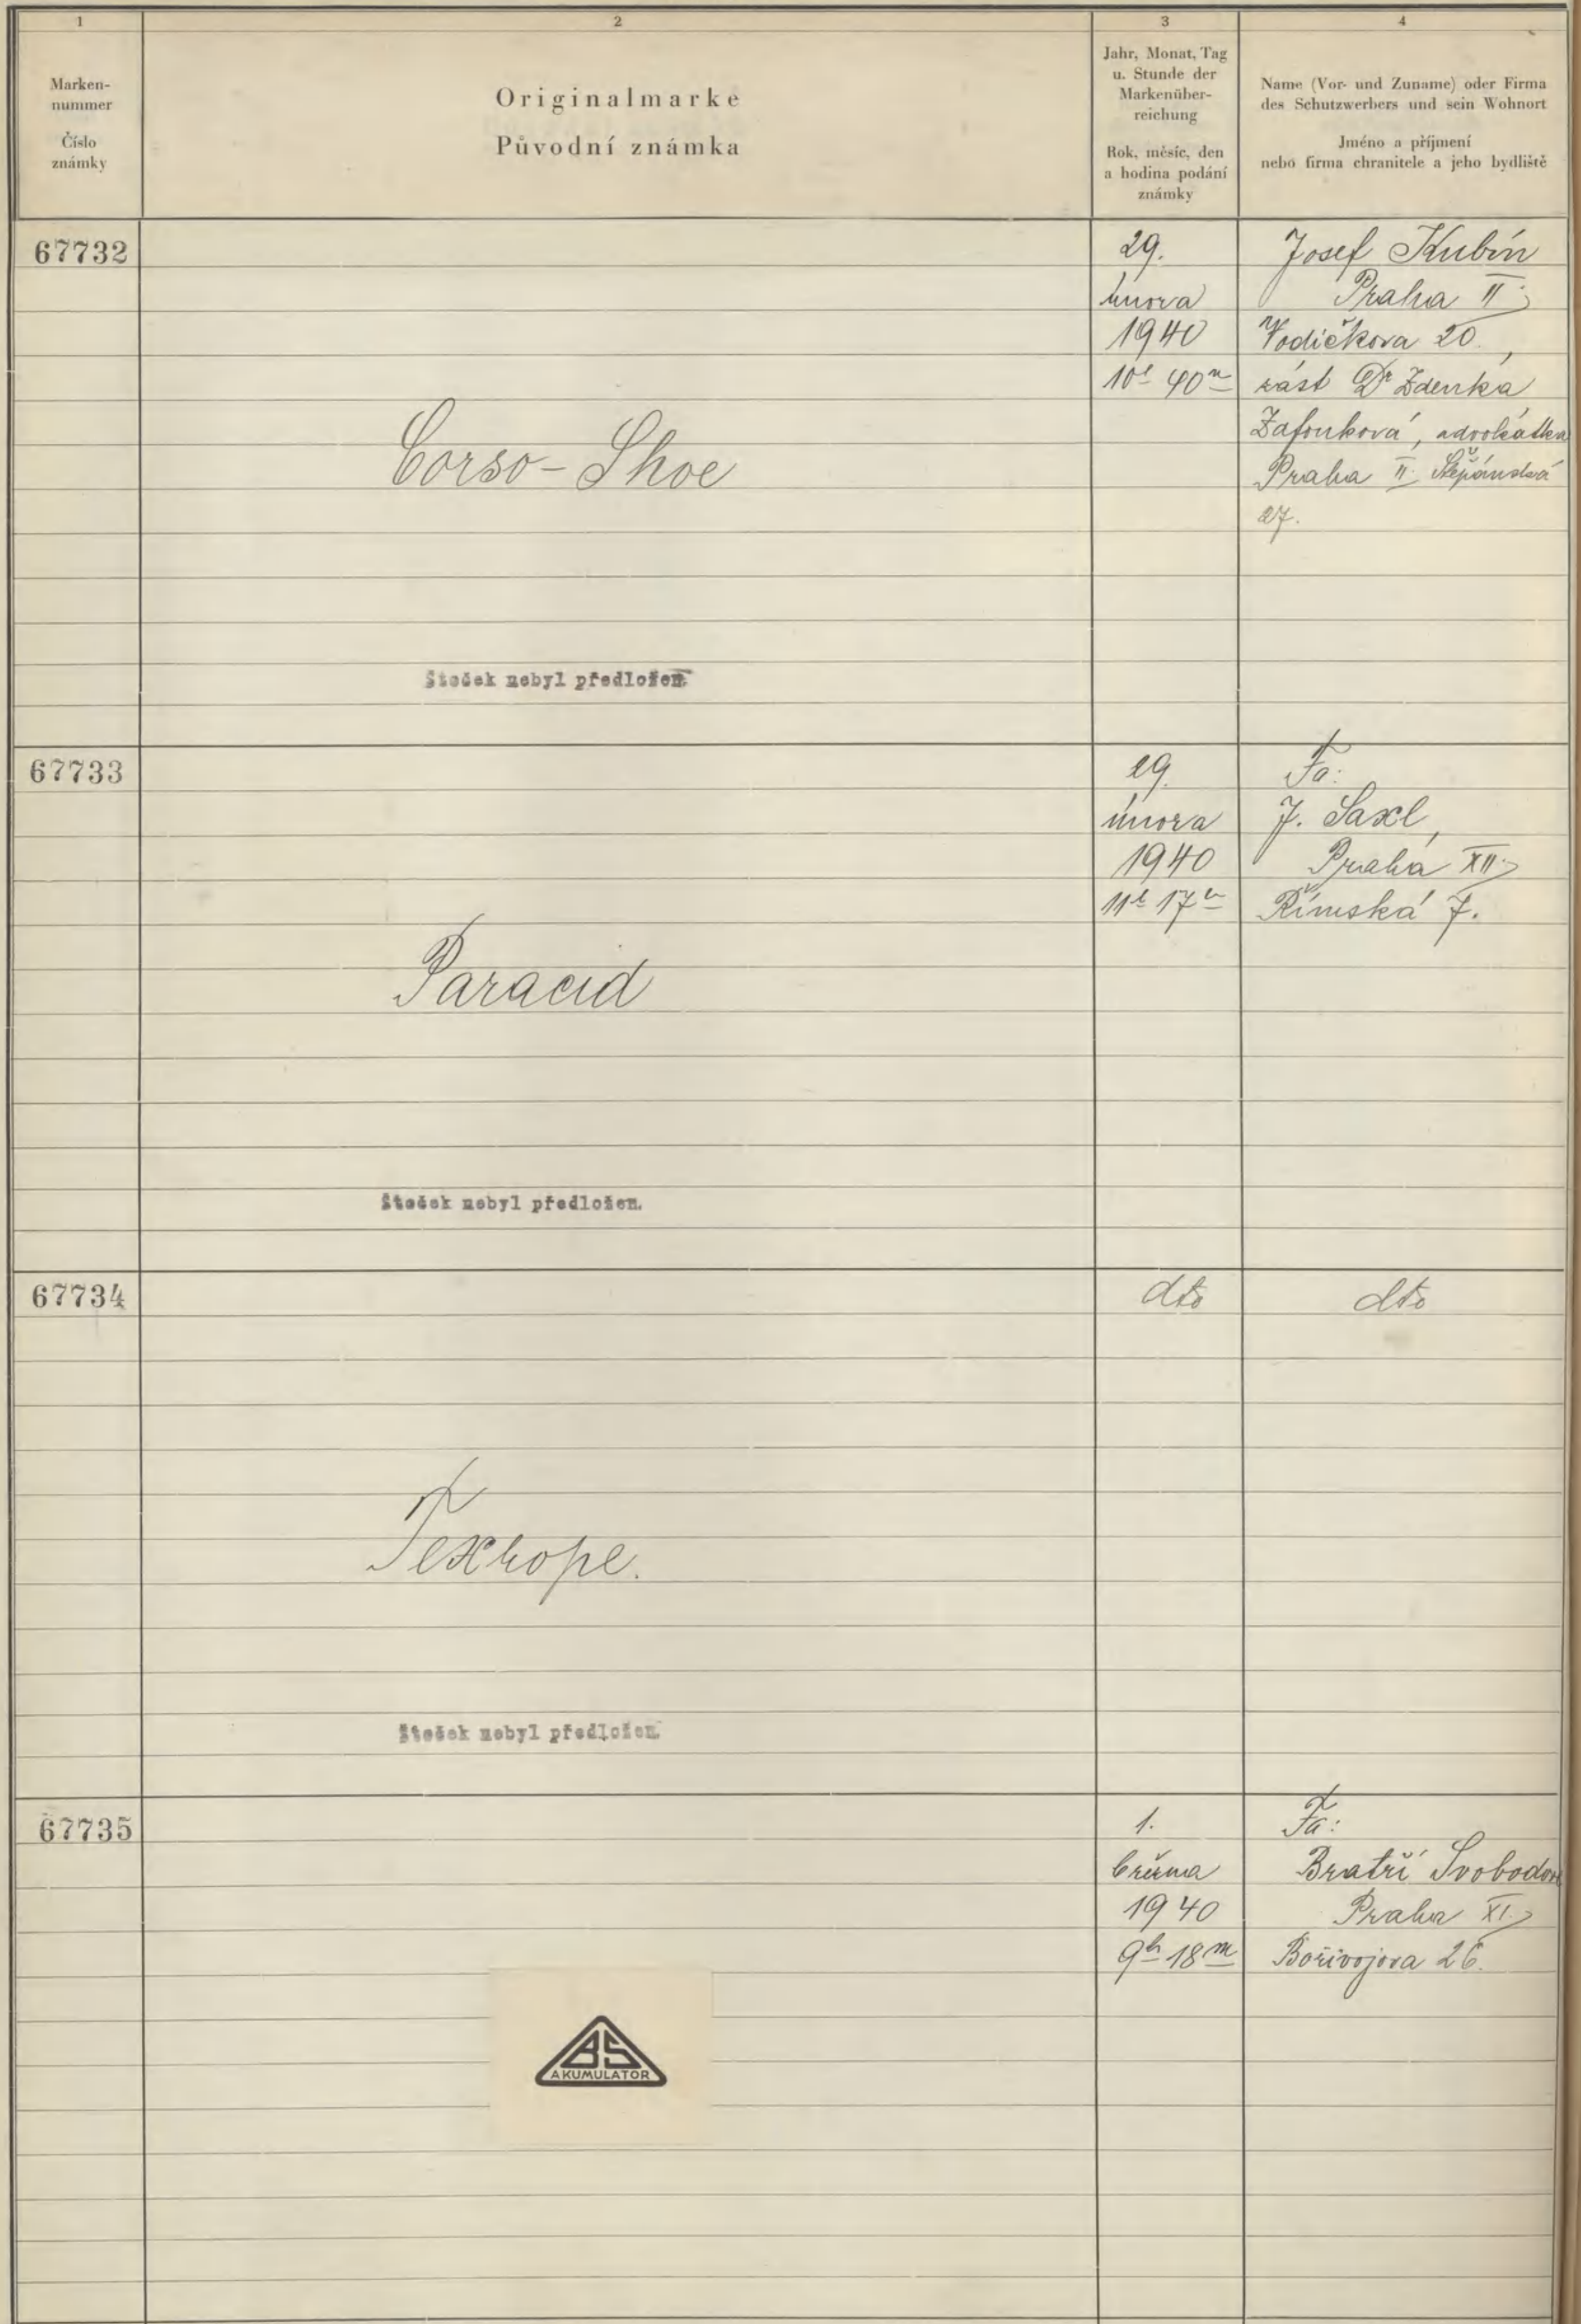 1
2
3
4
Marken-
nummer
Číslo
známky
Originalmarke
Původní známka
Jahr, Monat, Tag
u. Stunde der
Markenüber-
reichung
Rok, měsíc, den
a hodina podání
známky
Name (Vor- und Zuname) oder Firma
des Schutzwerbers und sein Wohnort
Jméno a příjmení
nebo firma chranitele a jeho bydliště
67732
Corso-Shoe
Štoček nebyl předložen
29.
února
1940
10h 40m
Josef Kubín
Praha II.
Vodičkova 20.,
zást Dr Zdenka
advokátka
Praha II. Štěpánská
27.
67733
Paracid
Štoček nebyl předložen.
29.
února
1940
11h 17m
Fa:
J. Saxl,
Praha XII.
Římská 7.
67734
Texrope.
Štoček nebyl předložen.
dto
dto
67735
BS
AKUMULATOR
1.
března
1940
9h 18m
Fa:
Bratří Svobodové
Praha XI.
Bořivojova 26.